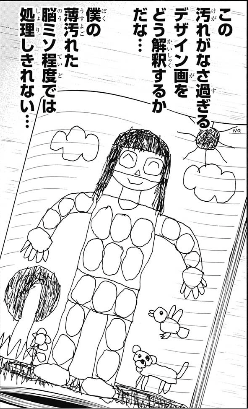 この
汚れがなさ過ぎる
デザイン画を
どう解釈するか
だな…
僕の
薄汚れた
脳ミソ程度では
処理しきれない…